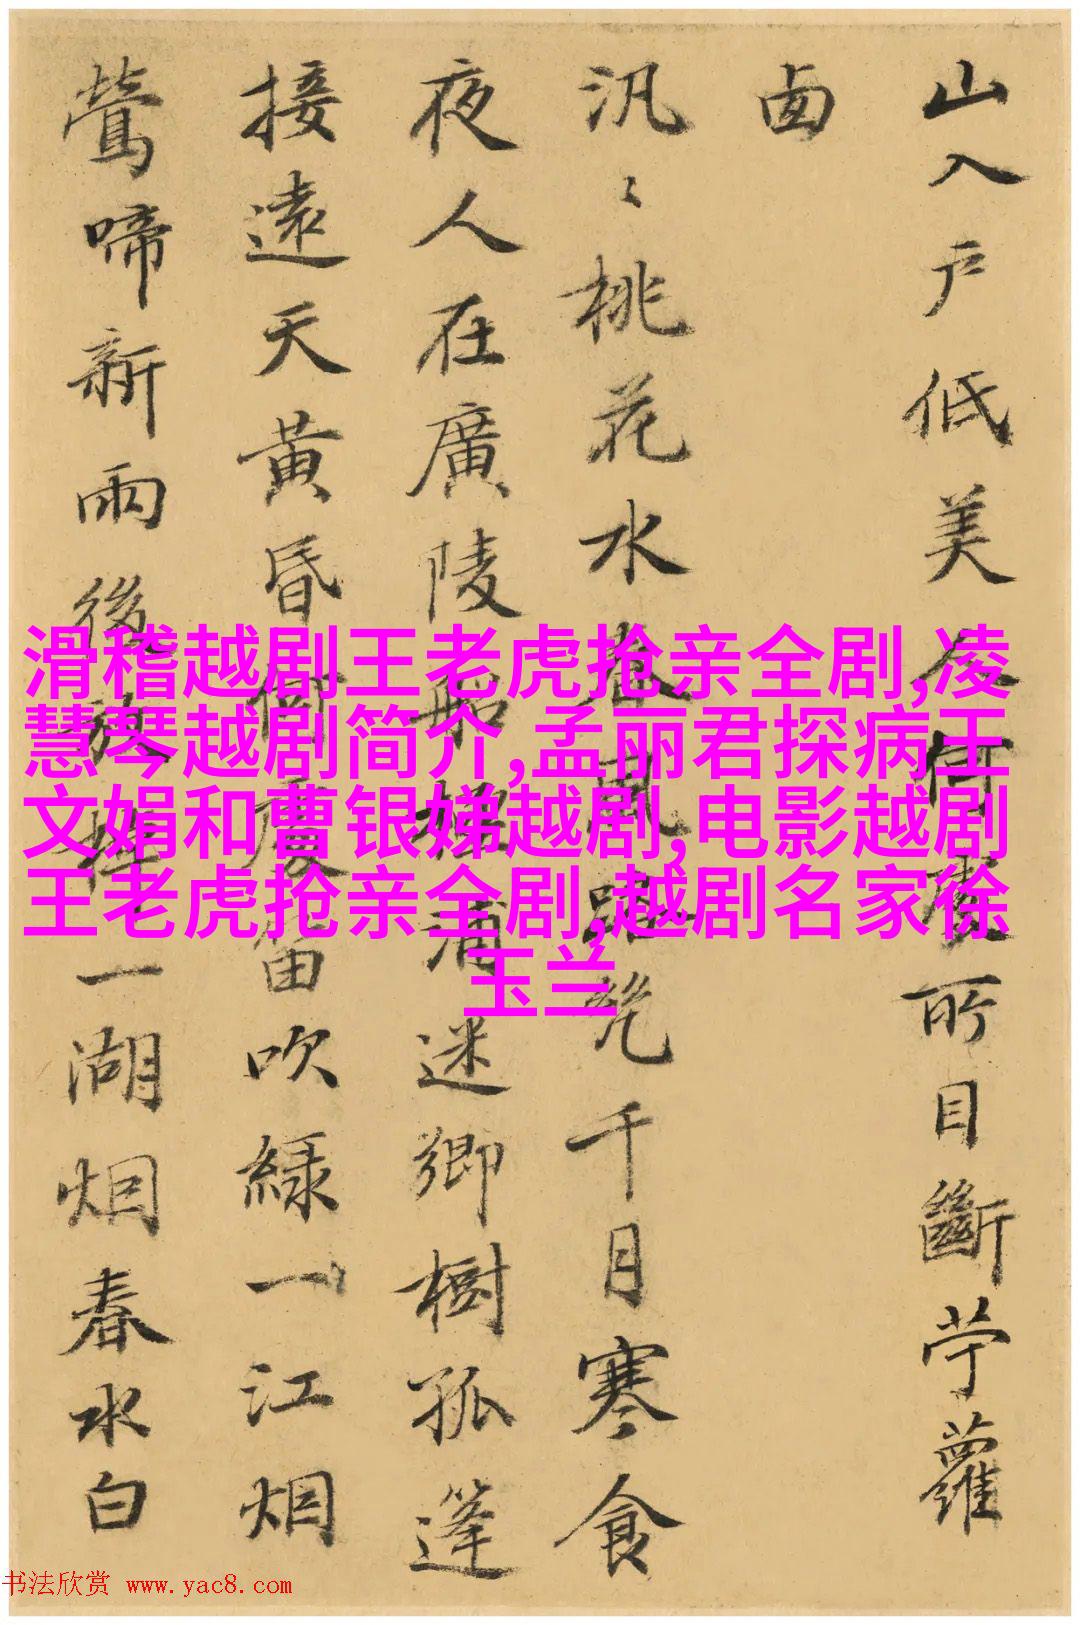 山入戶低美人何處所目斷苧蘿
卥
汎〻桃花水春風路幾千月寒食
夜人在廣陵船浦迷鄉樹孤篷
接遠天黃昏何處笛吹綠一江烟
鶯啼新雨後放棹一湖烟春水白
滑稽越剧王老虎抢亲全剧,凌
慧琴越剧简介,孟丽君探病王
文娟和曹银娣越剧,电影越剧
王老虎抢亲全剧,越剧名家徐
玉兰
书法欣赏 www.yac8.com